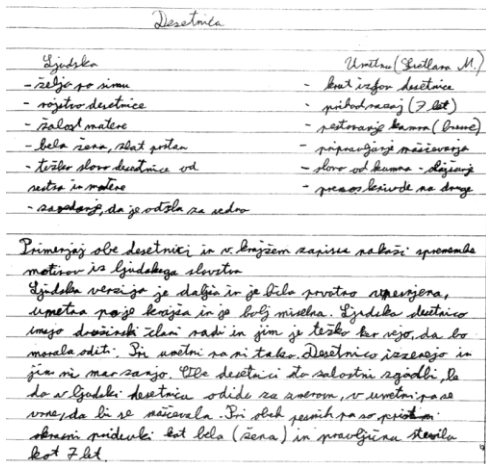 Desetnica
Ljudska
Umetna (Svetlana M.)
- želja po sinu
- rojstvo desetnice
- žalost matere
- bela žena, zlat prstan
- težko slovo desetnice od
sestra in matere
- da je odšla za vedno
- krut izgon desetnice
- prihod nazaj (7 let)
- pestovanje kamna (breme)
- pripravljanje maščevanja
- slovo od kamna -
- prenos krivde na druge
Primerjaj obe desetnici in v krajšem zapisu nakaži spremembe
motivov iz ljudskega slovstva
Ljudska verzija je daljša in je bila prvotno
umetna pa je krajša in je bolj miselna. Ljudsko destnico
imajo družinski člani radi in jim je težko ker vejo, da bo
morala oditi. Pri umetni pa ni tako. Desetnico izzenejo in
jim ni mar zanjo. Obe desetnici sta žalostni zgodbi, le
da v ljudski desetnica odide za zmerom, v umetni pa se
vrne, da bi se maščevala. Pri obeh pesmih pa so
okrasni pridevki kot bela (žena) in pravljična števila
kot 7 let.